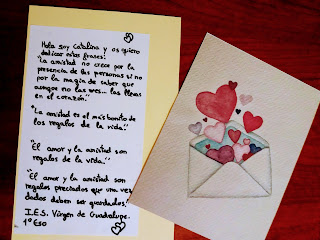 Hola soy Catalina y os quiero
dedicar estas frases:
"La amistad no crece por la
presencia de las personas si no
por la magia de saber que
aunque no las ves... las llevas
en el corazón."
"La amistad es el más bonito de
los regalos de la vida."
"El amor y la amistad son
regalos de la vida."
"El amor y la amistad son
regalos preciados que una vez
dados deben ser guardados."
I.E.S. Virgen de Guadalupe.
1º Eso